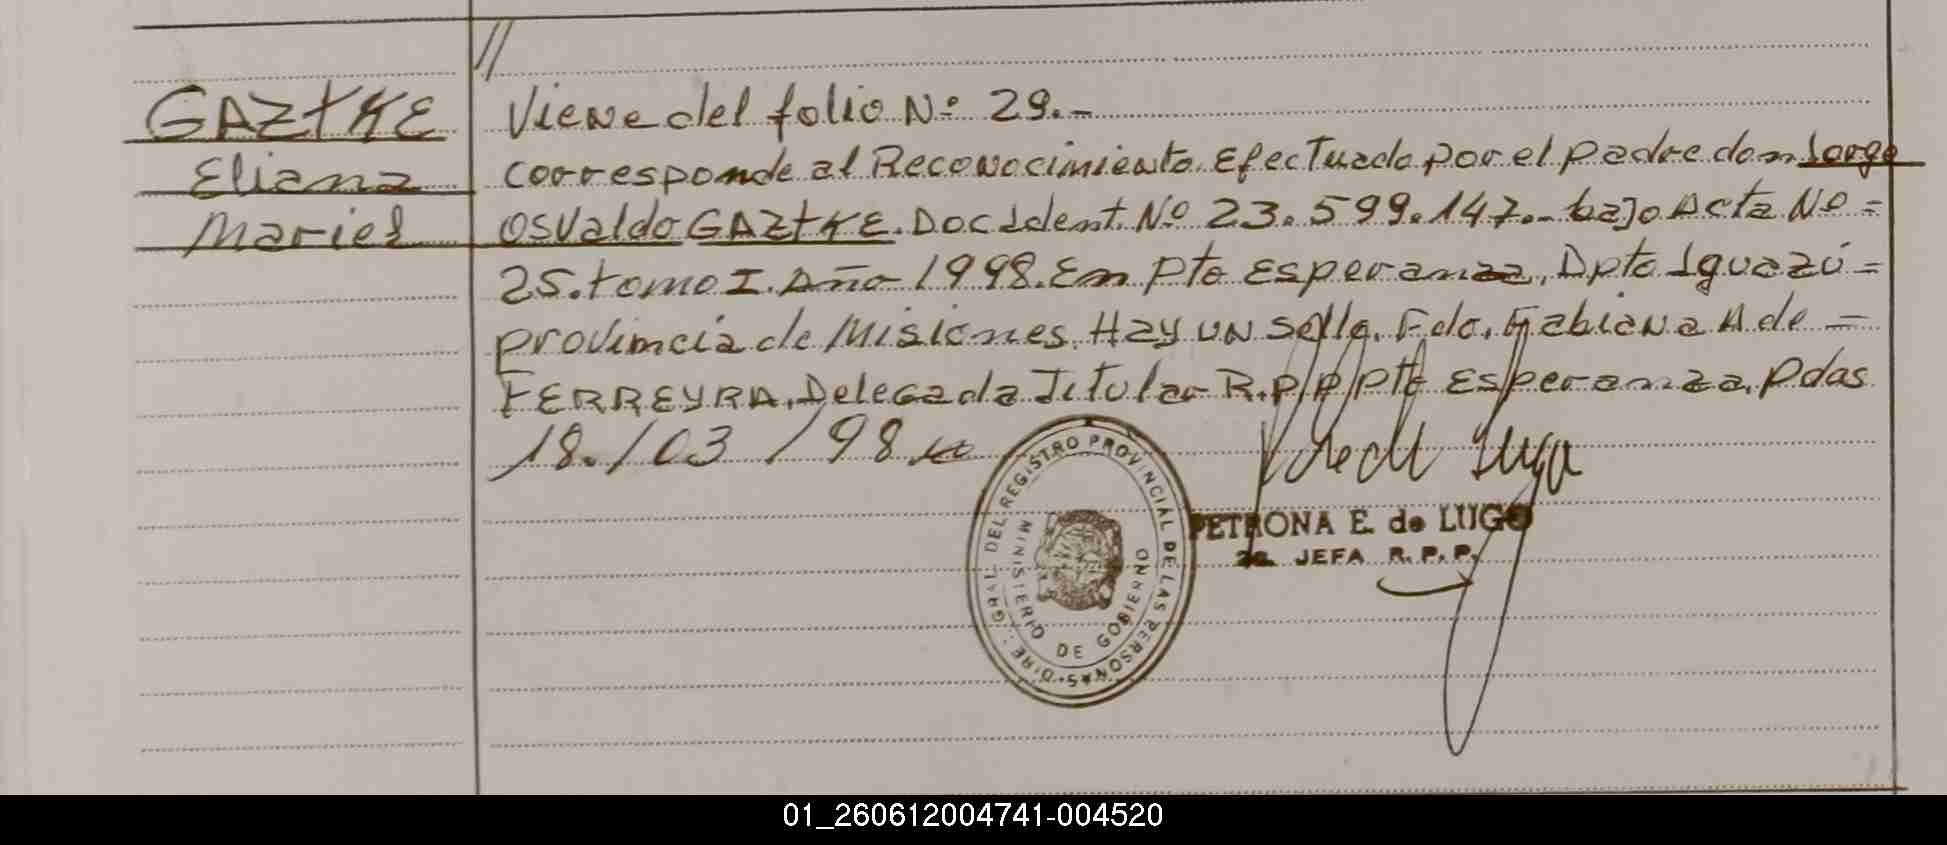 //
GAZtKE
Eliana
Mariel
Viene del folio Nº 29.-
corresponde al Reconocimiento Efectuado por el padre don Jorge
Osvaldo GAZtKE. Doc Ident. Nº 23.599.147.- bajo Acta Nº =
25. tomo I. Año 1998. En Pto Esperanza, Dpto Iguazú =
provincia de Misiones. Hay un sello. Fdo. Fabiana A de =
FERREYRA. Delegada Titular R.P.P. Pto Esperanza. Pdas
18./03/98
DIRE. GRAL. DEL REGISTRO PROVINCIAL DE LAS PERSONAS
MINISTERIO DE GOBIERNO
PETRONA E. de LUGO
2a. JEFA R. P. P.
01_260612004741-004520